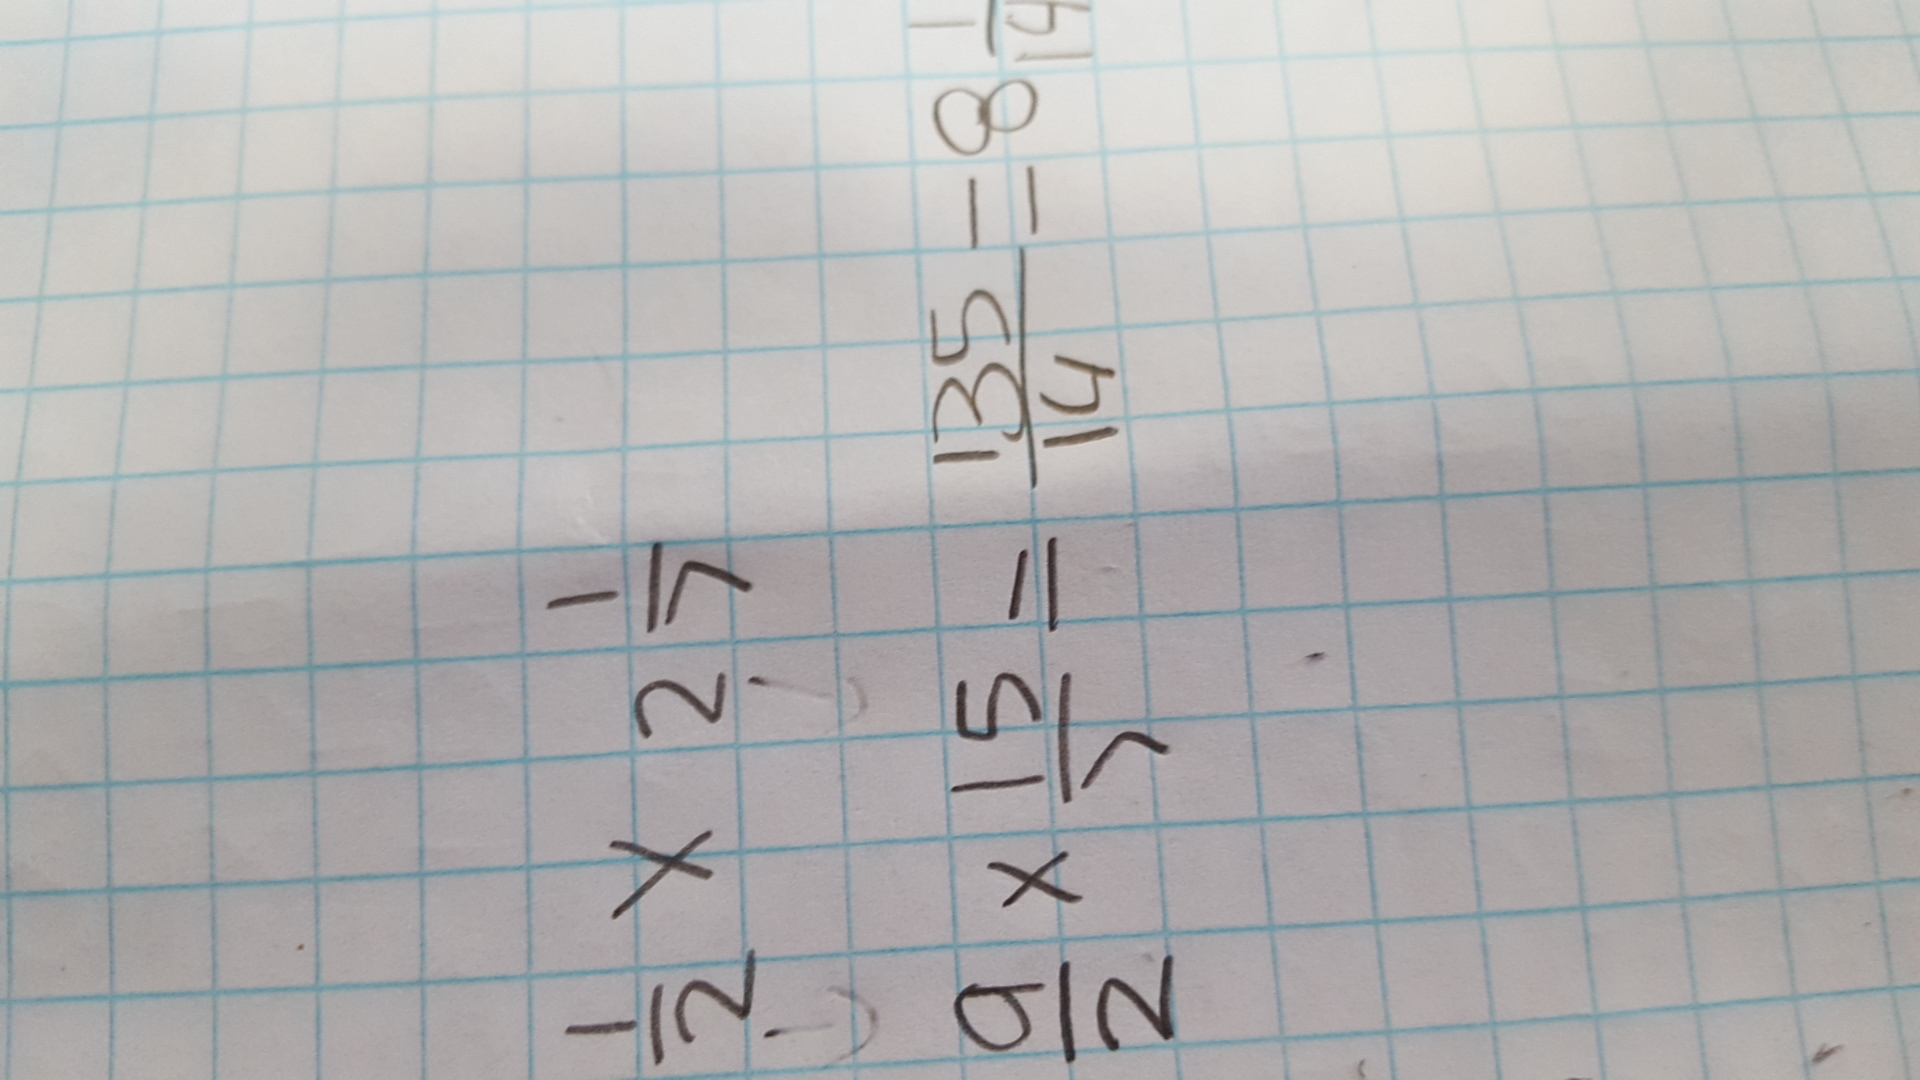 1/2 x 2 1/7
9/2 x 15/7 = 135/14 = 8 1/14